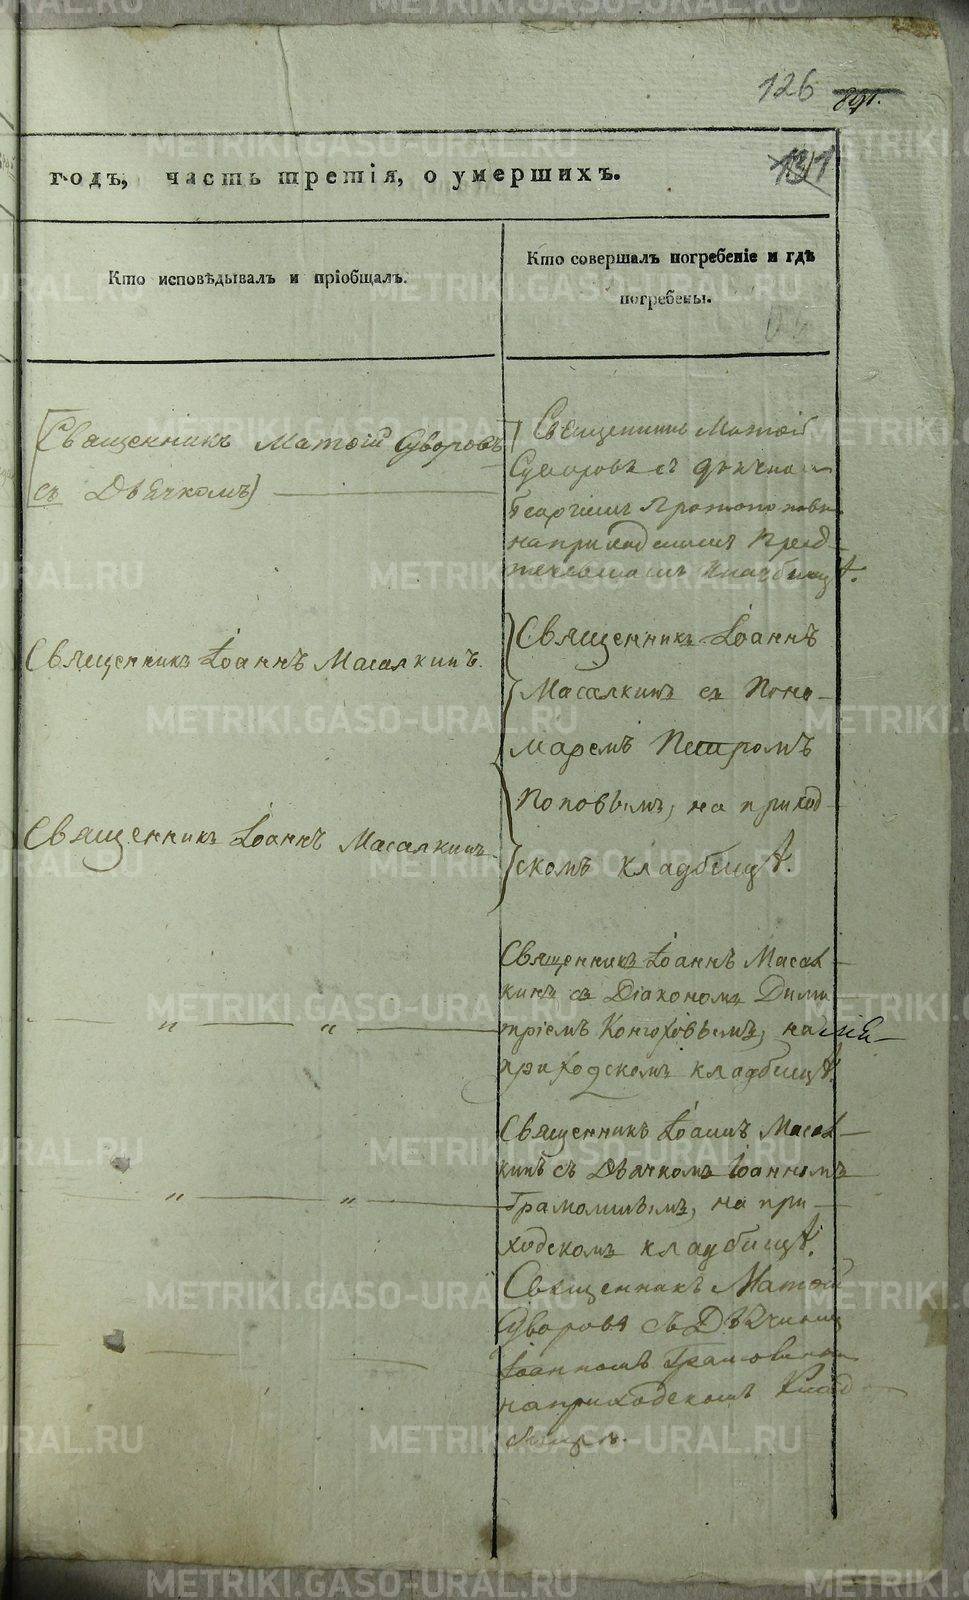 126 891.
131
годъ, часть третія, о умершихъ.
Кто исповѣдывалъ и пріобщалъ.
Кто совершалъ погребеніе и гдѣ
погребены.
Священникъ Матѳій Суворовъ
съ Дьячкомъ
Священникъ Матѳій
Суворовъ съ дьячком
Георгіемъ Протопоповым
на приходскомъ Пред-
течевскомъ кладбищѣ.
Священникъ Іоаннъ Масалкинъ.
Священникъ Іоаннъ
Масалкинъ съ Поно-
маремъ Петромъ
Поповымъ, на приход
скомъ кладбищѣ.
Священникъ Іоаннъ Масалкинъ.
Священникъ Іоаннъ Масал-
кинъ съ Діакономъ Дими
тріемъ Конюховымъ, на
приходскомъ кладбищѣ.
" "
Священникъ Іоаннъ Масал-
кинъ съ Дьячкомъ Іоанномъ
на при-
ходскомъ кладбищѣ.
" "
Священникъ Матѳій
Суворовъ съ
Іоанномъ
на приходскомъ Клад
METRIKI.GASO-URAL.RU